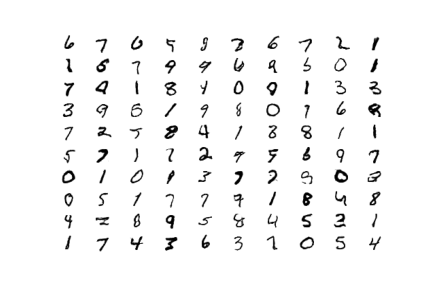 6 7 0 5 9 2 6 7 2 1
1 6 7 9 9 6 9 5 0 1
7 9 1 8 4 0 0 1 3 3
3 9 5 1 9 8 0 7 6 8
7 2 5 8 4 1 8 8 1 1
5 7 1 7 2 9 5 6 9 7
0 1 0 1 3 7 2 9 0 8
0 5 1 7 7 9 1 8 4 8
9 2 8 9 5 8 4 5 3 1
1 7 4 3 6 3 7 0 5 4